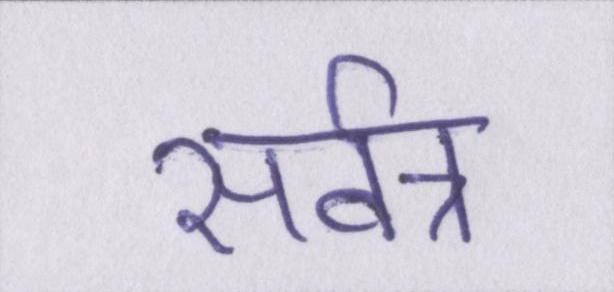 सर्वत्र